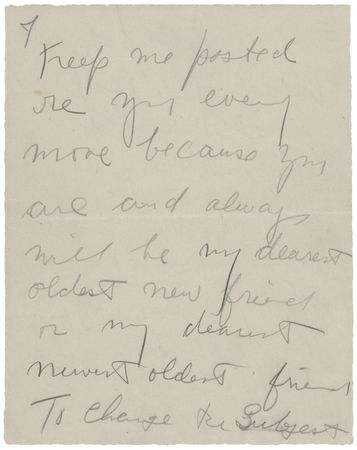 Keep me posted
re your every
move because you
are and always
will be my dearest
oldest new friend
or my dearest
newest oldest friend
To change the subject